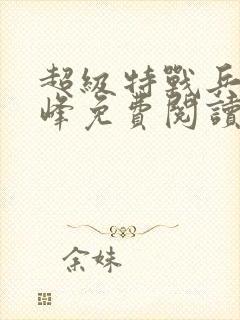 超級特戰兵
峰免費閱讀
余妹